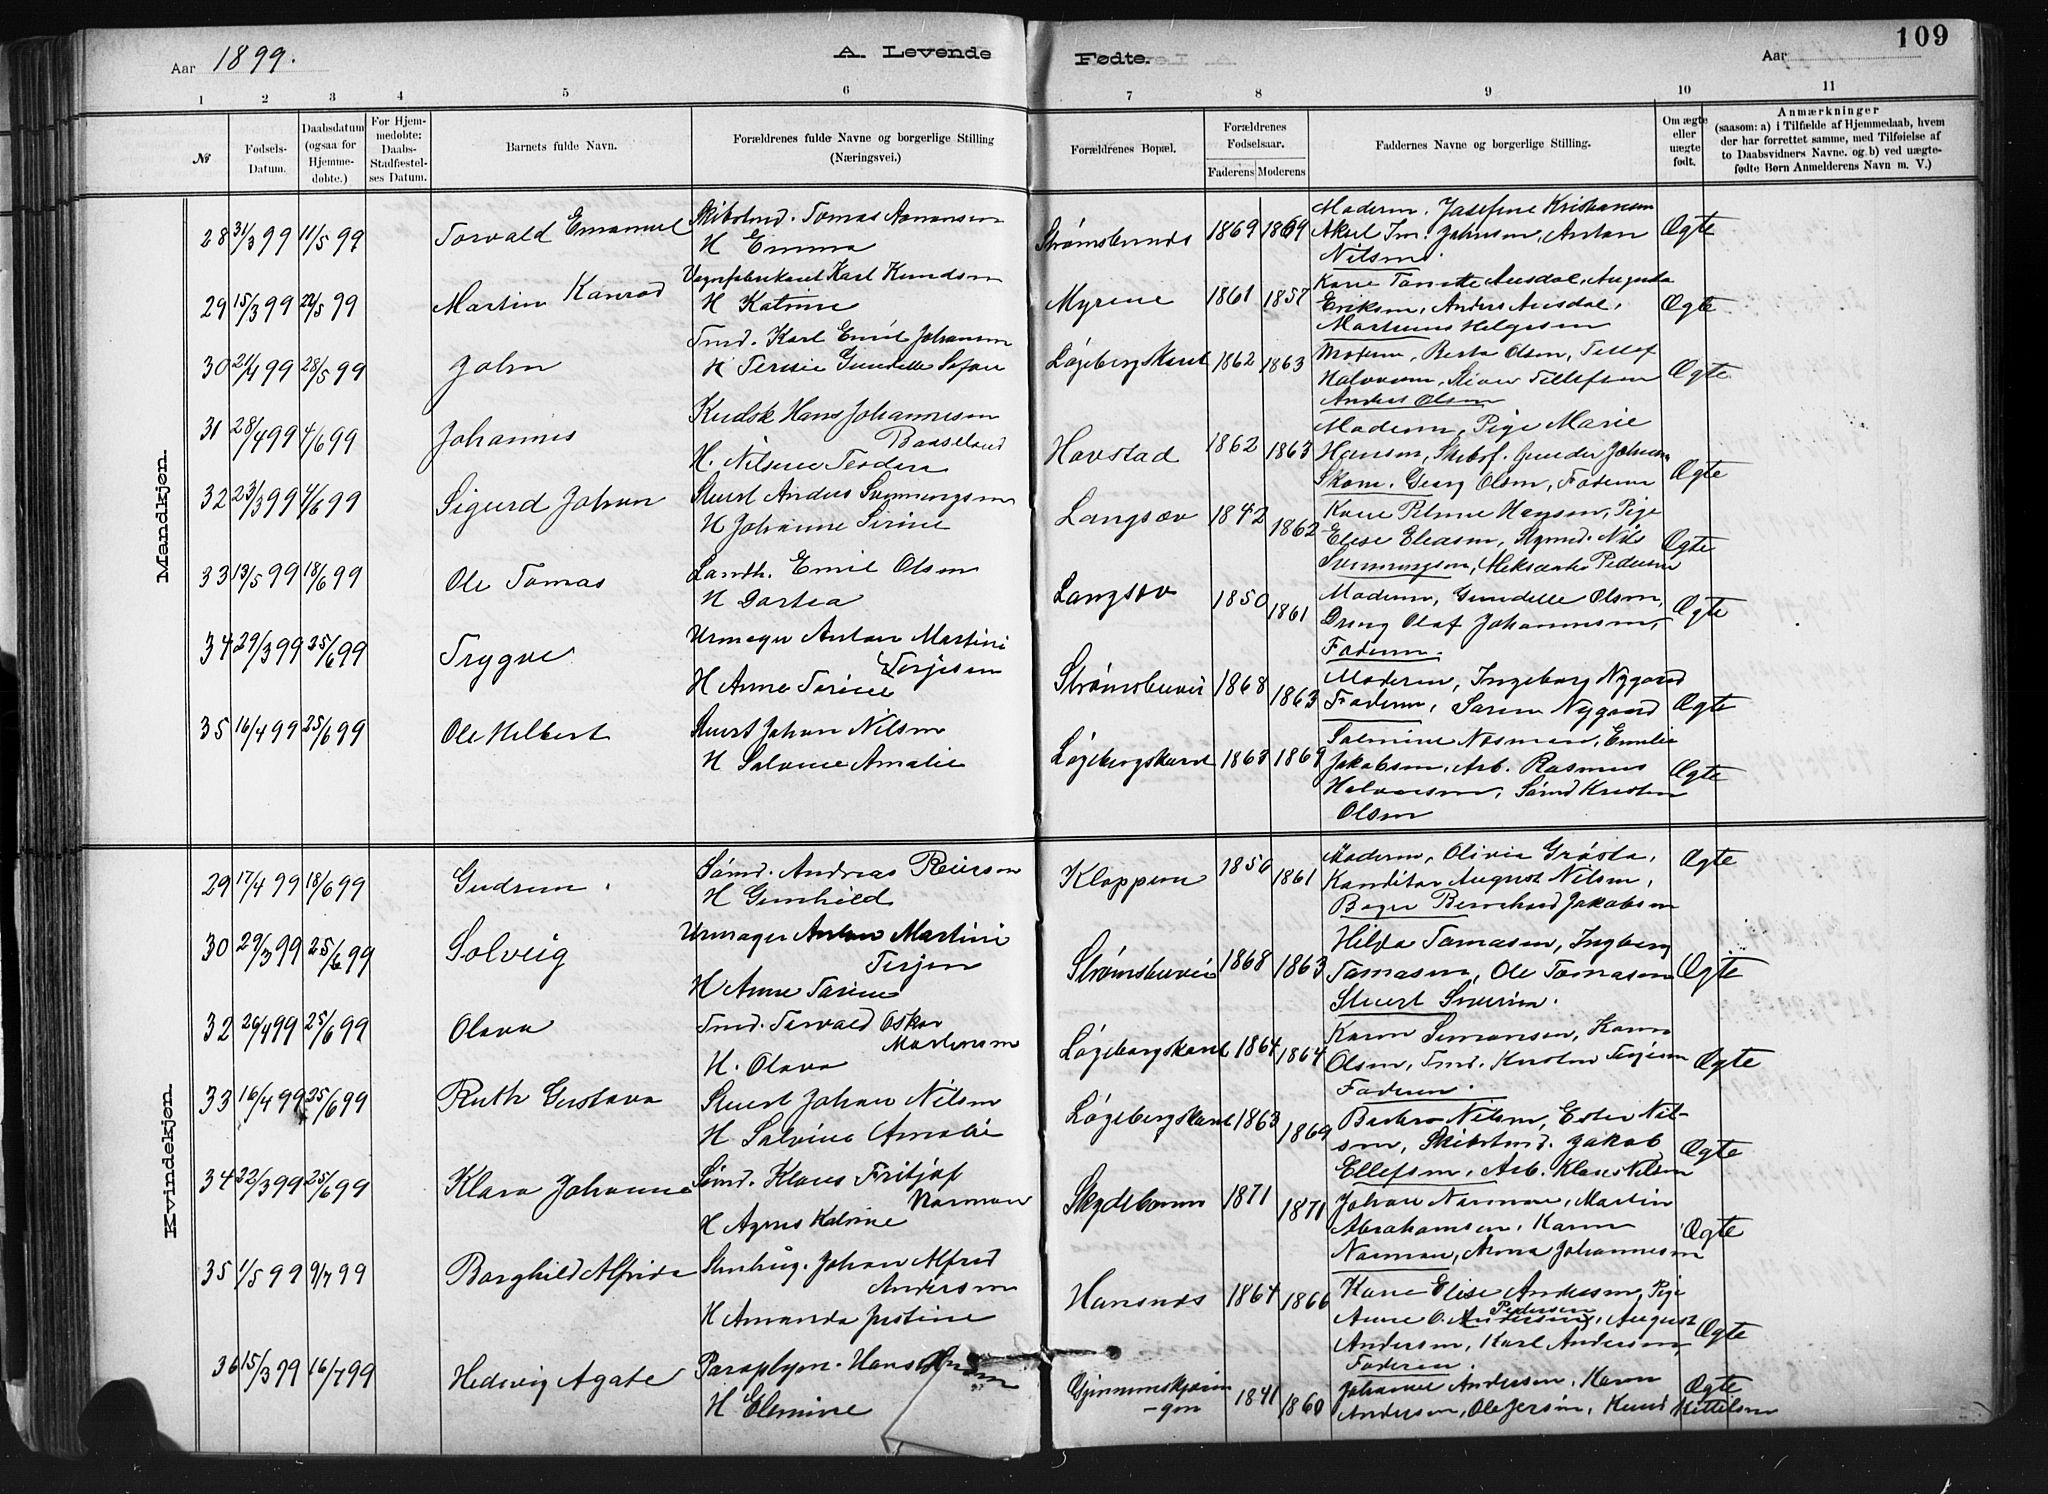 109
Aar 1899.
A. Levende Fødte.
Aar
1 2 3 4 5 6 7 8 9 10 11
№
Fødsels-Datum.
Daabsdatum (ogsaa for Hjemmedøbte.)
For Hjemmedøbte: Daabs-Stadfæstelses Datum.
Barnets fulde Navn.
Forældrenes fulde Navne og borgerlige Stilling (Næringsvei.)
Forældrenes Bopæl.
Forældrenes Fødselsaar.
Faderens Moderens
Faddernes Navne og borgerlige Stilling.
Om ægte eller uægte født.
Anmærkninger
(saasom: a) i Tilfælde af Hjemmedaab, hvem der har forrettet samme, med Tilføielse af to Daabsvidners Navne. og b) ved uægte-fødte Børn Anmelderens Navn m. V.)
Mandkjøn.
28 31/3 99 11/5 99 Torvald Emanuel
H Emma
1869 1869
Moderen, Josefine Kristiansen
Nilsen.
Ægte
29 15/3 99 22/5 99 Martin Konrad
Vognfabrikant Karl Knudsen
H Katrine
Myrene 1861 1857
Eriksen, Anders
Ægte
30 21/4 99 28/5 99 John
Tmd. Karl Emil Johansen
H Teresie Gundelle
Løgebergskaret 1862 1863
Moderen, Berta Olsen, Tellef
Halvorsen, Tellefsen
Anders Olsen
Ægte
31 28/4 99 4/6 99 Johannes
Kudsk Hans Johannesen
H. Nilsine Teodora
Havstad 1862 1863
Moderen, Pige Marie
Hansen, Gunder Johnsen
Georg Olsen, Faderen
Ægte
32 23/3 99 4/6 99 Sigurd Johan
Stuert Anders Svenningsen
H Johanne Sirine
Langsæv 1842 1862
Hansen, Pige
Elise Eliasen, Nils
Svenningsen, Aleksander Pedersen
Ægte
33 13/5 99 18/6 99 Ole Tomas
Landh. Emil Olsen
H Dortea
Langsæv 1850 1861
Moderen, Gundelle Olsen,
Dreng Olaf Johannesen,
Faderen.
Ægte
34 29/3 99 25/6 99 Trygve
Urmager Anton Martini
Terjesen
H Anne Torine
Strømsbuvei 1868 1863
Moderen, Ingeborg Nygaard
Faderen, Søren Nygaard
Ægte
35 16/4 99 25/6 99 Ole Hilbert
Stuert Johan Nilsen
H Salvine Amalie
Løgebergskaret 1863 1869
Salmine Norman, Emilie
Jakobsen, Arb. Rasmus
Halvorsen, Sømd Kristen
Olsen
Ægte
Kvindekjøn.
29 17/4 99 18/6 99 Gudrun
Sømd. Andreas Reiersen
H Gunhild
Kloppene 1856 1861
Moderen, Olivia
Konditor August Nilsen,
Bager Bernhard Jakobsen
Ægte
30 29/3 99 25/6 99 Solveig
Urmager Anton Martini
Terjesen
H Anne Torine
Strømsbuvei 1868 1863
Hilda Tomasen, Ingeborg
Tomasen, Ole Tomasen
Stuert
Ægte
32 26/4 99 25/6 99 Olava
Tmd. Torvald Oskar
Mortensen
H. Olava
Løgebergskaret 1864 1864
Karen Simonsen, Karen
Olsen, Tmd. Kristen Terjesen
Faderen.
Ægte
33 16/4 99 25/6 99 Ruth Gustava
Stuert Johan Nilsen
H Salvine Amalie
Løgebergskaret 1863 1869
Barbro Nilsen, Ester Nil-
sen, Skibstmd. Jakob
Ellefsen, Arb. Klaus Nilsen
Ægte
34 22/3 99 25/6 99 Klara Johanne
Sømd. Klaus Fritjof
Norman
H Agnes Katrine
Skydebanen 1871 1871
Johan Norman, Martin
Abrahamsen, Karen
Norman, Anna Johannesen
Ægte
35 1/5 99 9/7 99 Borghild Alfrida
Stenhug. Johan Alfred
Andersen
H Amanda Justine
Hansnes 1864 1866
Kone Elise Andersen, Pige
Pedersen
Anne O. Andersen, August
Andersen, Karl Andersen,
Faderen.
Ægte
36 15/3 99 16/7 99 Hedevig Agate
Paraplym. Hans
H Elemine
1841 1860
Johanne Andersen, Karen
Andersen, Ole Jensen, Knud Kittelsen
Ægte